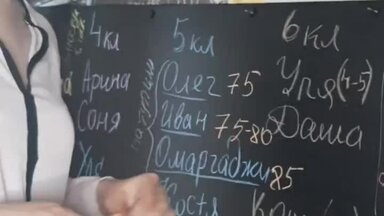 4 кл
Арина
Соня
Уля
5 кл
Олег 75
Иван 75-80
Омаргаджи 85
Костя
6 кл
Уля (4-5)
Даша